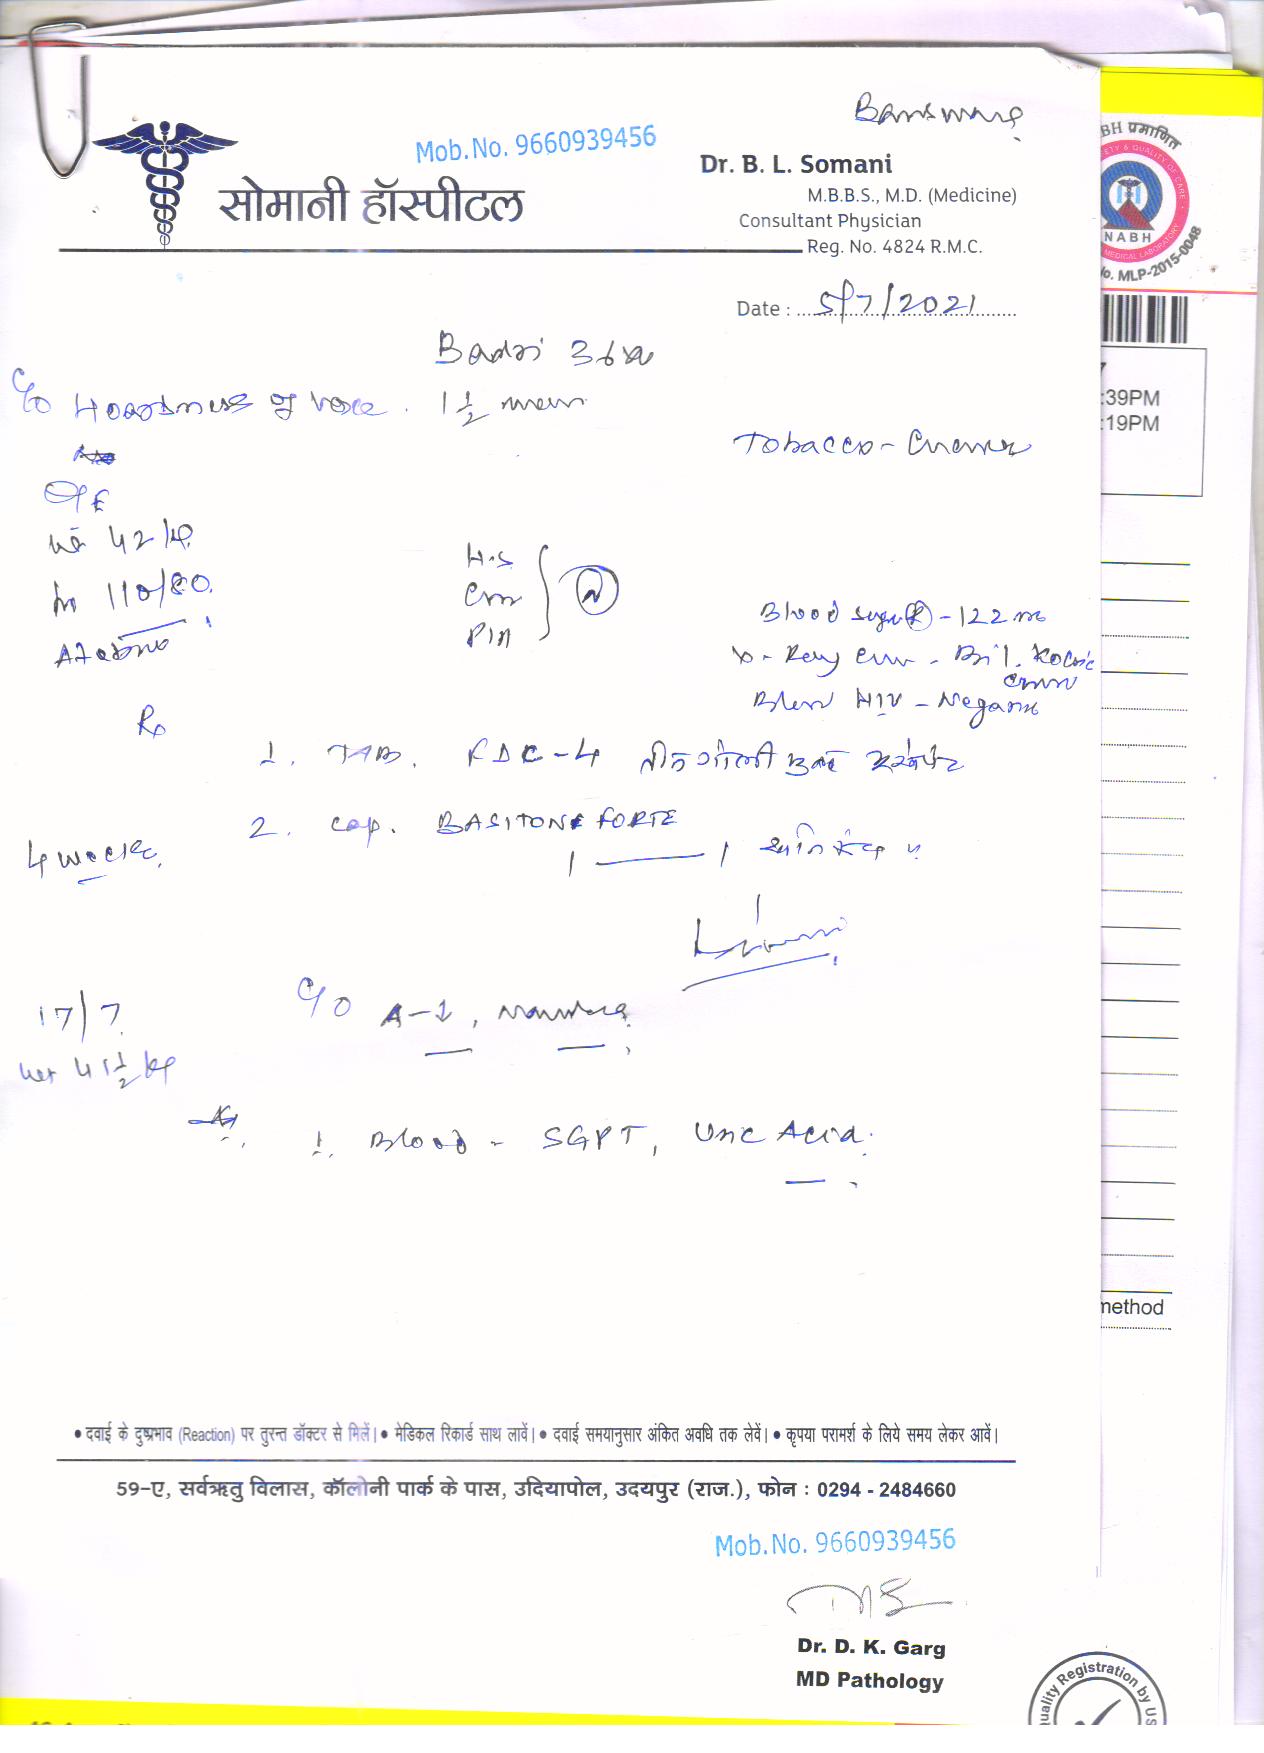 Banswara
Mob.No. 9660939456
सोमानी हॉस्पीटल
Dr. B. L. Somani
M.B.B.S., M.D. (Medicine)
Consultant Physician
Reg. No. 4824 R.M.C.
Date : 5/7/2021
Badri 36
C/O Hoarsness of voice. 1 1/2
Tobacco -
O/E
wt 42 kg.
110/80.
Afebrile
H.S
CNS
P/A
N
Blood sugar R - 122 m
X-Ray - Bil. Koch's
Blood HIV - Negative
Rx
1. TAB. FDC-4 तीन गोली सुबह
2. Cap. BASITONE FORTE
1 — 1
4 weeks
17/7
C/O A - ↓, Nausea
wt 41 1/2 kg
1. Blood - SGPT, Uric Acid.
• दवाई के दुष्प्रभाव (Reaction) पर तुरन्त डॉक्टर से मिलें। • मेडिकल रिकार्ड साथ लावें। • दवाई समयानुसार अंकित अवधि तक लेवें। • कृपया परामर्श के लिये समय लेकर आवें।
59-ए, सर्वऋतु विलास, कॉलोनी पार्क के पास, उदियापोल, उदयपुर (राज.), फोन : 0294 - 2484660
Mob.No. 9660939456
Dr. D. K. Garg
MD Pathology
BH प्रमाणित
ETY & QUALITY OF CARE
NABH
MEDICAL LABORATORY
o. MLP-2015-0048
:39PM
:19PM
method
uality Registration by US